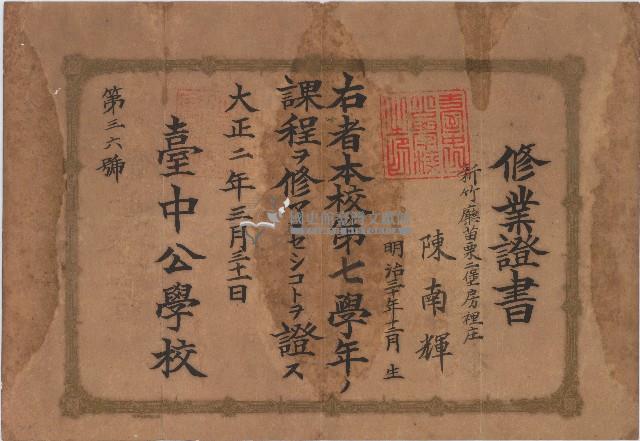 修業證書
新竹廳苗栗二堡房裡庄
陳南輝
明治三十年十二月生
右者本校第七學年ノ
課程ヲ修マセシコトヲ證ス
大正二年三月三十一日
臺中公學校
第三六號
國史館臺灣文獻館